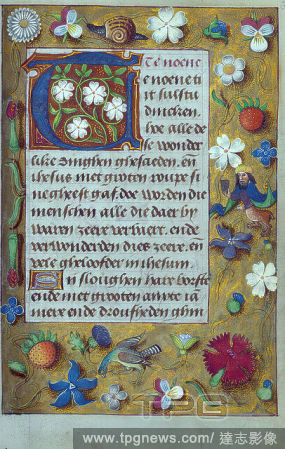 Te noene
e noene ti
it sulstu
drucken.
hoe alle de
se wonder
like dinghen ghescieden. en
ihesus met groten roupe si
negheest gaf. doe worden die
menschen alle die daer by
waren zeere vervaert. ende
verwonderden dies zeere. en
vele gheloofder in ihesum.
En sloughen haer borste
ende met groten anxte ia
mere ende droufheden ghin
TPG
www.tpgnews.com/ 達志影像